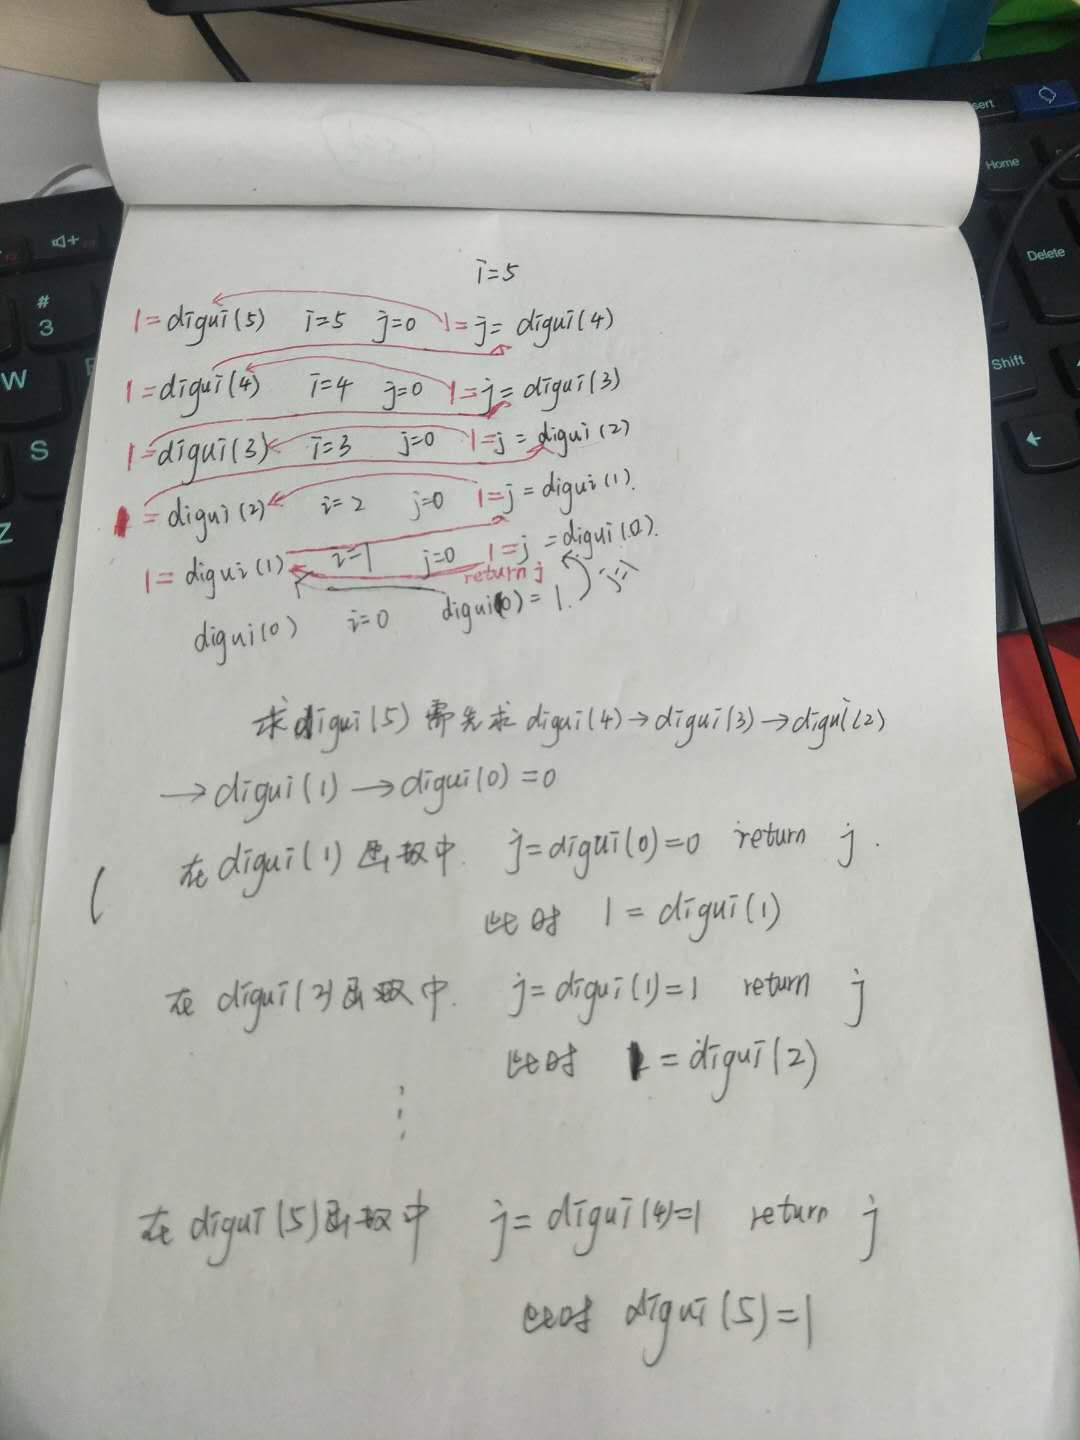 i=5
1=digui(5) i=5 j=0 1=j= digui(4)
1=digui(4) i=4 j=0 1=j= digui(3)
1=digui(3) i=3 j=0 1=j = digui(2)
= digui(2) i=2 j=0 1=j = digui(1).
1= digui(1) i=1 j=0 1=j =digui(0).
return j
j=1
digui(0) i=0 digui(0)= 1.
求digui(5) 需先求 digui(4)→digui(3)→digui(2)
→digui(1)→digui(0)=0
在digui(1)函数中. j=digui(0)=0 return j.
此时 1=digui(1)
在 digui(2)函数中. j=digui(1)=1 return j
此时 1=digui(2)
⋮
在 digui(5)函数中 j= digui(4)=1 return j
此时 digui(5)=1
#
3
W
S
Z
Insert
Home
Delete
Shift